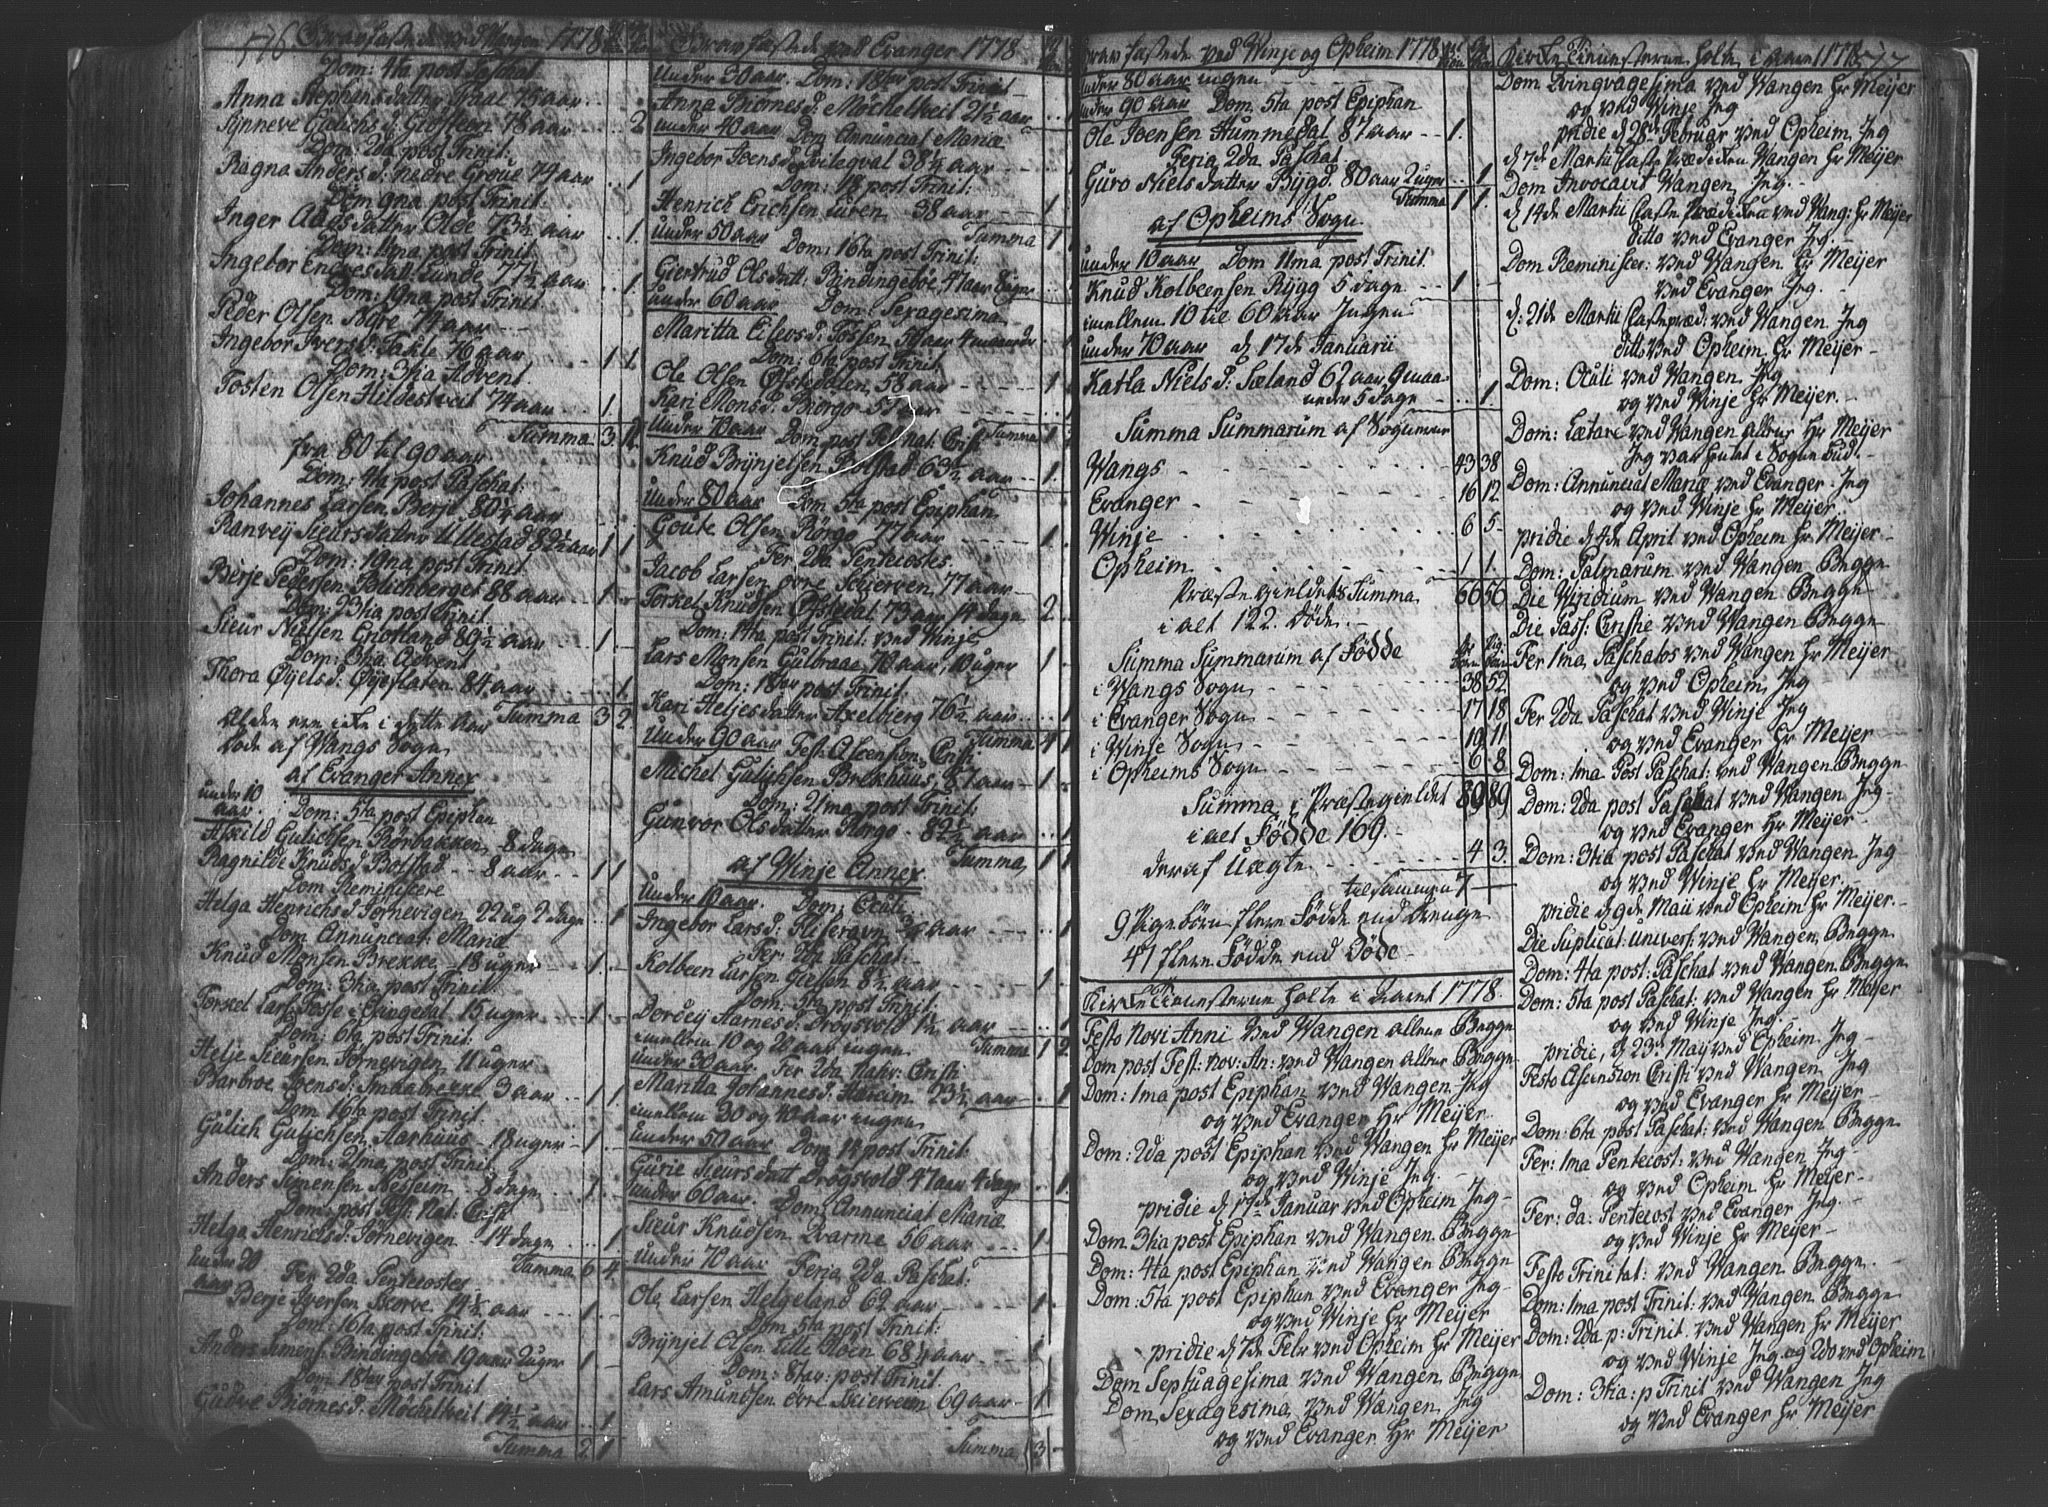 176 Gravfæstede ved Wangen 1778
Dom: 4ta post Paschat
Anna Stephensdatter 75 aar
Synneve Gulichs d. 78 aar 2
Dom: 2da post Trinit:
Ragna Anders d: nedre Groue 74 aar 1
Dom 9na post Trinit:
Inger Aadsdatter Olde 73½ aar 1.
Dom: 11ma post Trinit
Ingebor datt: Lunde 77½ aar 1.
Dom: 19na post Trinit
Peder Olsen 74 aar
Ingebor Ivers d: 76 aar 1 1
Dom: 3tia Advent
Tosten Olsen Hildestveit 74 aar 1.
Summa 3
fra 80 til 90 aar
Dom: 4ta post Paschat:
Johannes Larsen Berje 80¼ aar
Ranvey Sieursdatter Ullestad 82½ aar 1 1
Dom: 19na post Trinit
Berje Pedersen 88 aar 1
Dom: 23tia post Trinit
Sieur Nielsen 89½ aar 1
Dom: 3tia Advent
Thora d: 84 aar 1
Summa 3 2
Ældre ere icke i dette Aar
døde af Wangs Sogn
af Evanger Annex
under 10 aar. Dom: 5ta post Epiphan
Gulichsen Rørbakken 8 dage
Ragnilde Knuds d Bolstad 8 aar 1 1
Dom Reminiscere
Helga Henrichs d Jørnevigen 22 ug 2 dage 1
Dom Annunciat: Mariæ
Knud Monsen Brekke 18 uger 1
Dom: 3tia post Trinit
Torkel Lars: Fosse i Exingedal 15 uger 1
Dom: 6ta post Trinit:
Helje Sieursen Jørnevigen 11 uger
Barbroe Joens d: 3 aar 1 1
Dom 16ta post Trinit:
Gulich Gulichsen Aarhuus 18 uger 1
Dom: 21ma post Trinit
Anders Simensen Nesseim 8 dage 1
Dom: post Fest: Nat: Christi
Helga Henrichs d: Jørnevigen 14 dage 1
Summa 6 4
under 20 aar Fer 2da Pentecostes
Berje Iversen Skorve 14½ aar 1
Dom: 16ta post Trinit:
Anders Simens: Bindingebøe 19 aar 2 uger 1
Dom 18tav post Trinit
Gudve Biørnes d: Møcheltveit 14½ aar 1
Summa 2 1
Gravfæstede ved Evanger 1778
under 30 aar. Dom: 18tav post Trinit
Anna Biørnes d: Møchelltveit 21½ aar 1
under 40 aar Dom Annunciat Mariæ
Ingebor Joens d 38¼ aar
Dom: 18 post Trinit:
Henrich Erichsen Luren 38 aar 1
under 50 aar Dom: 16ta post Trinit: Summa 1
Giertrud Ols datt: Bindingebøe 47 aar 8 uger
under 60 aar Dom: Sexagesima
Maritta d: Fossen aar 4 maaneder
Dom: 6ta post Trinit
Ole Olsen Øfstedalen 58 aar 1
Kari Mons d: Biørgo 57 aar
under 70 aar Dom, post F Nat: Christi Summa 1
Knud Brynjelsen Bolstad 63½ aar 1.
under 80 aar Dom 5ta post Epiphan
Goute Olsen Rørgo 77 aar 1
Fer 2da Pentecostes
Jacob Larsen øvre Schierven 77 aar
Torkel Knudsen Øfstedal 73 aar 14 dage 2
Dom: 14ta post Trinit: ved Winje
Lars Monsen Gulbraae 70 aar, 10 uger 1
Dom: 18tav post Trinit:
Kari Heljesdatter Axelberg 76½ aar 1
under 90 aar Fest: Ascension Christi Summa 4 1
Michel Gulichsen Brekhuus 87 aar 1
Dom: 21ma post Trinit:
Gunvor Olsdatter Rørgo 82½ aar 1
Summa 1 1
af Winje Annex
under 10 aar. Dom: Oculi
Ingebor Lars d: aar 1
Fer: 2da Paschat:
Kolbeen Larsen 8½ aar 1
Dom: 5ta post Trinit:
Dordey Aarnes d: Drøgsvold 1½ aar 1
imellem 10 og 20 aar ingen Summa 1 2
under 30 aar: Fer 2da Nativ: Christi
Maritta Johannes d: 23½ aar 1
imellem 30 og 40 aar ingen
under 50 aar Dom 14 post Trinit:
Gurie Sieurs datt Drøgsvold 47 aar 4 dage 1.
under 60 aar. Dom: Annunciat Mariæ
Sieur Knudsen Qvarme 56 aar 1
under 70 aar Feria 2da Paschat:
Ole Larsen Helgeland 62 aar 1
Dom 5ta post Trinit:
Brynjel Olsen 68¼ aar 1
Dom: 8tav: post Trinit:
Lars Amundsen øvre Skierveen 69 aar 1
Summa 3
Gravfæstede ved Winje og Opheim 1778
under 80 aar ingen
under 90 aar Dom: 5ta post Epiphan
Ole Joensen Hummedal 87 aar 1.
Feria 2da Paschat
Guro Nielsdatter Bygd. 80 aar 2 uger 1
Summa 1 1.
af Opheims Sogn
under 10 aar Dom 11ma post Trinit
Knud Kolbeensen Rygg 5 dage 1
imellem 10 til 60 aar Ingen
under 70 aar d 17de Januarii
Katla Niels d: Sæland 62 aar 9 maa
neder 5 dage 1
Summa Summarum af Sognerne
Wangs 43 38
Evanger 16 12
Winje 6 5
Opheim 1 1.
Præstegieldets Summa 66 56
i alt 122. døde.
Summa Summarum af Fødde
i Wangs Sogn 38 52
i Evanger Sogn 17 18
i Winje Sogn 19 11
i Opheims Sogn 6 8
Summa i Præstegieldet 80 89
i alt Fødde 169.
deraf uægte 4 3.
tilsammen 7
9 Pigebørn flere Fødde end Drenge
47 flere Fødde end Døde
Kircketienesterne holte i Aaret 1778.
Festo Novi Anni ved Wangen allene Begge
Dom post Fest: nov: An: ved Wangen Begge
Dom: 1ma post Epiphan ved Wangen Jeg
og ved Evanger Hr Meijer
Dom: 2da post Epiphan ved Wangen Hr Meijer
og ved Winje Jeg.
pridie d 17de Januar ved Opheim Jeg
Dom 3tia post Epiphan ved Wangen Begge
Dom: 4ta post Epiphan ved Wangen Begge
Dom: 5ta post Epiphan ved Evanger Jeg
og ved Winje Hr Meijer
pridie d 7de Febr ved Opheim Hr Meijer
Dom Septuagesima ved Wangen Begge
Dom, Sexagesima, ved Wangen Jeg
og ved Evanger Hr Meijer
Kircketienesterne holte i Aaret 1778 177
Dom Qvinqvagesima ved Wangen Hr Meijer
og ved Winje Jeg
pridie d 28de Februar ved Opheim Jeg
d 7de Martii fastePrædiken Wangen Hr Meijer
Dom Invocavit Wangen Jeg.
d 14de Martii fastePrædiken ved Wang: Hr Meijer
ditto ved Evanger Jeg.
Dom Reminiscer: ved Wangen Hr Meijer
ved Evanger Jeg.
d: 21de Martii fastepræd: ved Wangen Jeg
ditto ved Opheim Hr Meijer
Dom: Oculi ved Wangen Jeg
og ved Winje Hr Meijer.
Dom: Lætare ved Wangen Hr Meijer
Jeg var i Sogne bud.
Dom: Annunciat Mariæ ved Evanger Jeg
og ved Winje Hr Meijer.
pridie d 4de April ved Opheim Hr Meijer
Dom: Palmarum ved Wangen Begge
Die Viridium ved Wangen Begge
Die Pass: Christi ved Wangen Begge
Fer 1ma Paschatos ved Wangen Hr Meijer
og ved Opheim, Jeg
Fer 2da Paschat ved Winje Jeg
og ved Evanger Hr Meijer
Dom: 1ma Post Paschat: ved Wangen Begge
Dom: 2da post Paschat ved Wangen Jeg
og ved Evanger Hr Meijer
Dom: 3tia post Paschat ved Wangen Jeg
og ved Winje Hr Meijer.
pridie d 9de Maii ved Opheim Hr Meijer.
Die Suplicat: univers: ved Wangen Begge
Dom: 4ta post: Paschat ved Wangen Begge
Dom: 5ta post Paschat: ved Wangen Hr Meijer
og ved Winje Jeg
pridie, d 23: Maij ved Opheim Jeg
Festo Ascension Christi ved Wangen Jeg
og ved Evanger Hr Meijer
Dom: 6ta post Paschat: ved Wangen Begge
Fer: 1ma Pentecost: ved Wangen Jeg
og ved Opheim Hr Meijer
Fer: da: Pentecost ved Evanger Jeg
og ved Winje Hr Meijer
Festo Trinitat: ved Wangen Begge
Dom: 1ma post Trinit: ved Wangen Begge
Dom: 2da p: Trinit. ved Wangen Hr Meijer
og ved Winje Jeg, og 2do ved Opheim
Dom: 3tia: p Trinit ved Wangen Jeg
og ved Evanger Hr Meijer